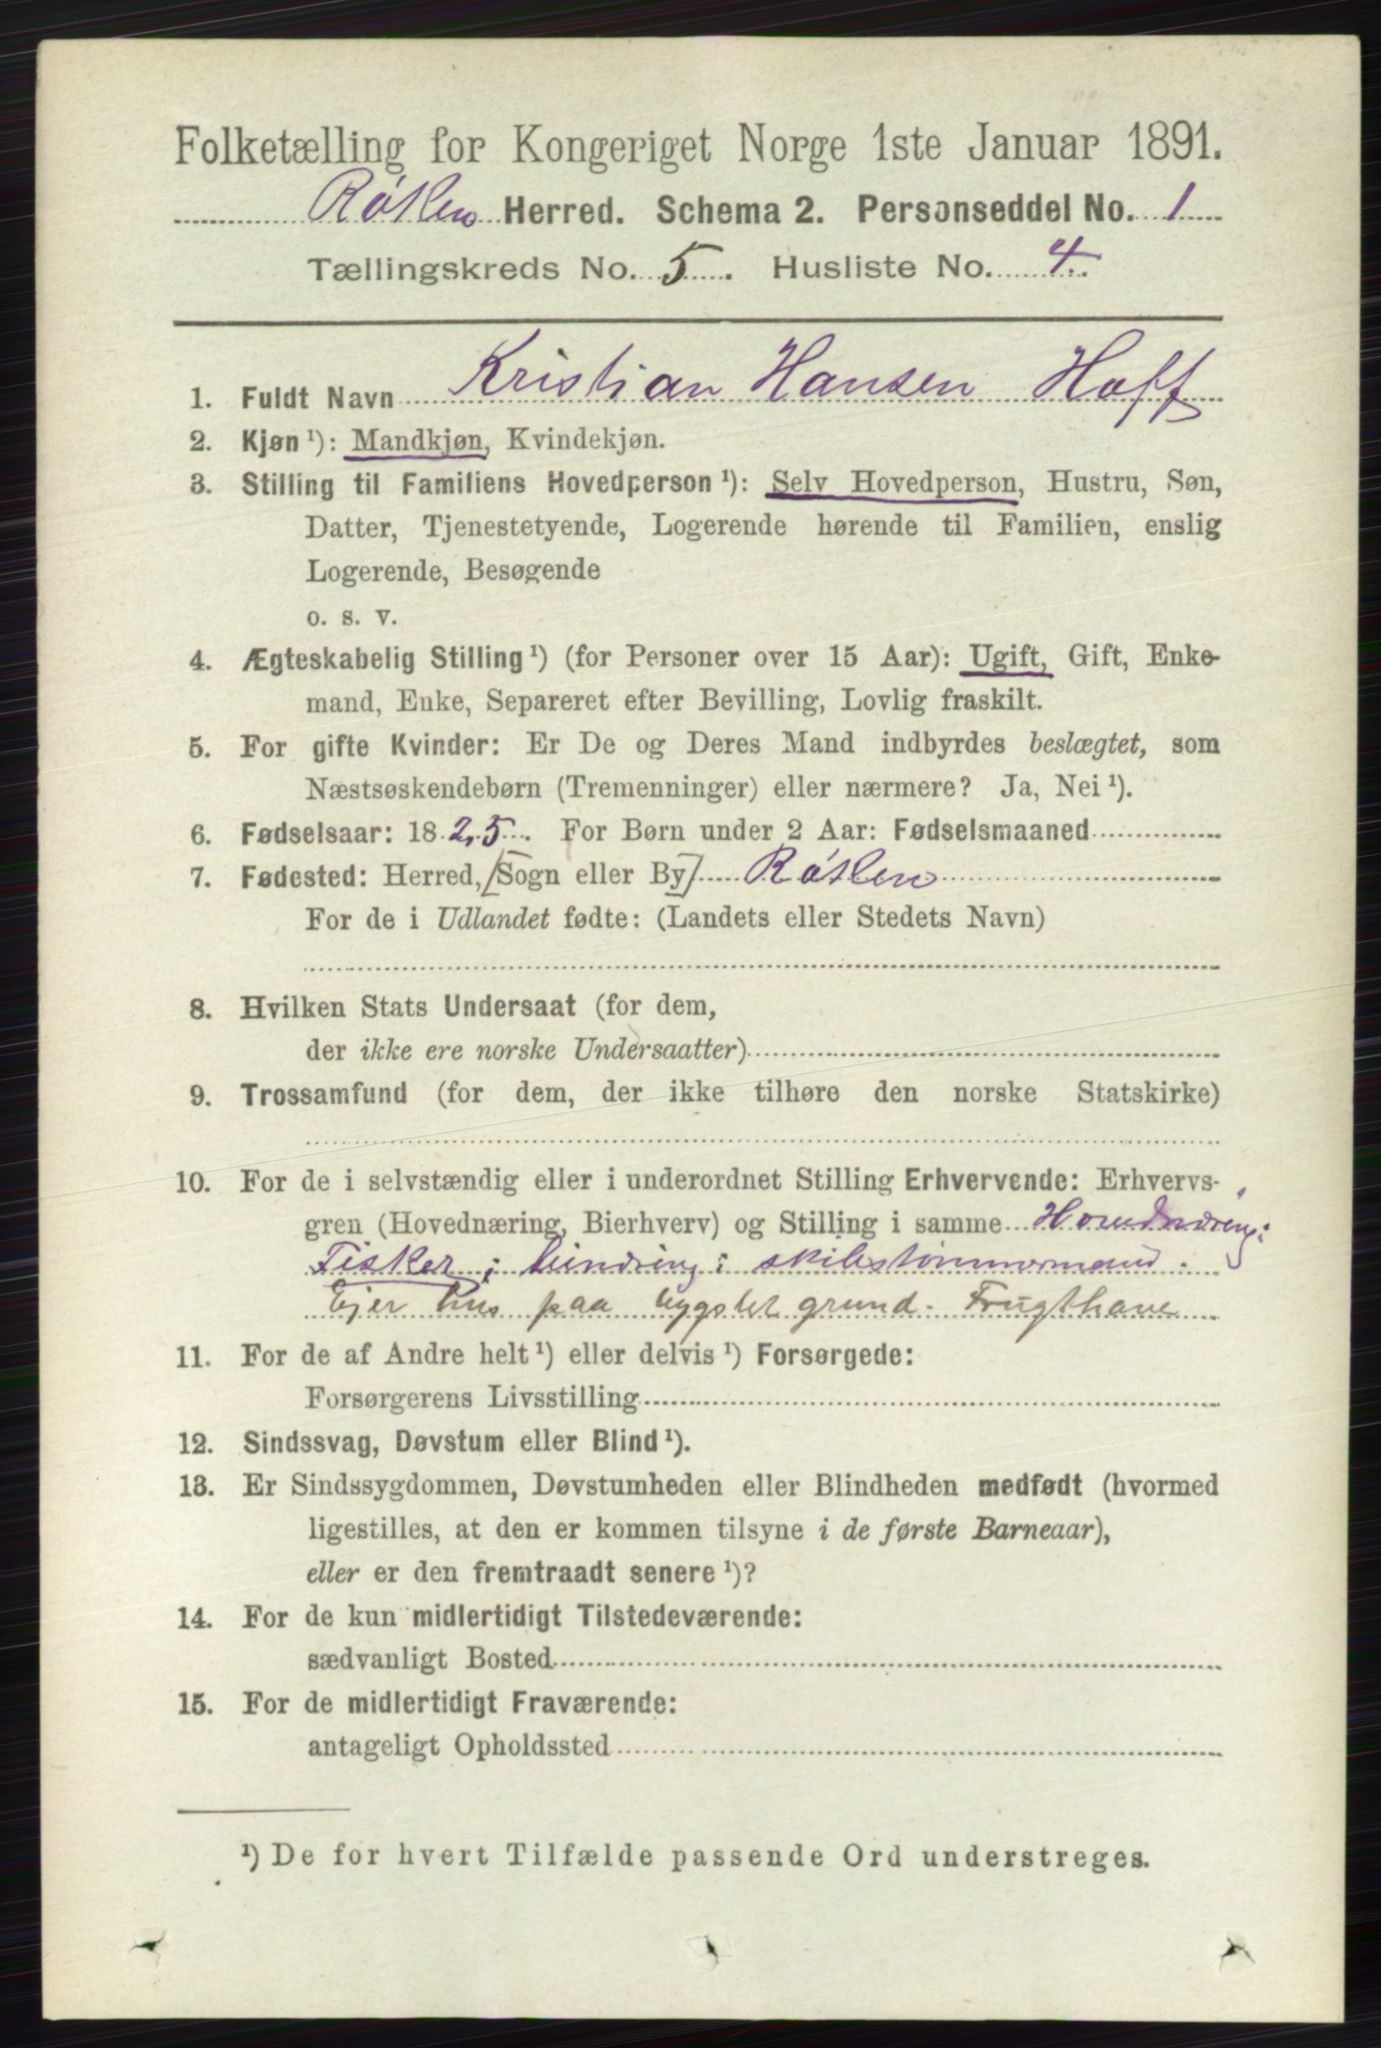 Folketælling for Kongeriget Norge 1ste Januar 1891.
Røken Herred. Schema 2. Personseddel No. 1
Tællingskreds No. 5. Husliste No. 4.
1. Fuldt Navn Kristian Hansen Hoff
2. Kjøn ¹): Mandkjøn, Kvindekjøn.
3. Stilling til Familiens Hovedperson ¹): Selv Hovedperson, Hustru, Søn,
Datter, Tjenestetyende, Logerende hørende til Familien, enslig
Logerende, Besøgende
o. s. v.
4. Ægteskabelig Stilling ¹) (for Personer over 15 Aar): Ugift, Gift, Enke-
mand, Enke, Separeret efter Bevilling, Lovlig fraskilt.
5. For gifte Kvinder: Er De og Deres Mand indbyrdes beslægtet, som
Næstsøskendebørn (Tremenninger) eller nærmere? Ja, Nei ¹).
6. Fødselsaar: 1825. For Børn under 2 Aar: Fødselsmaaned
7. Fødested: Herred, [Sogn eller By] Røken
For de i Udlandet fødte: (Landets eller Stedets Navn)
8. Hvilken Stats Undersaat (for dem,
der ikke ere norske Undersaatter)
9. Trossamfund (for dem, der ikke tilhøre den norske Statskirke)
10. For de i selvstændig eller i underordnet Stilling Erhvervende: Erhvervs-
gren (Hovednæring, Bierhverv) og Stilling i samme
Fisker; skibstømmermand.
Ejer hus paa bygslet grund. Frugthave
11. For de af Andre helt ¹) eller delvis ¹) Forsørgede:
Forsørgerens Livsstilling
12. Sindssvag, Døvstum eller Blind ¹).
13. Er Sindssygdommen, Døvstumheden eller Blindheden medfødt (hvormed
ligestilles, at den er kommen tilsyne i de første Barneaar),
eller er den fremtraadt senere ¹)?
14. For de kun midlertidigt Tilstedeværende:
sædvanligt Bosted
15. For de midlertidigt Fraværende:
antageligt Opholdssted
¹) De for hvert Tilfælde passende Ord understreges.